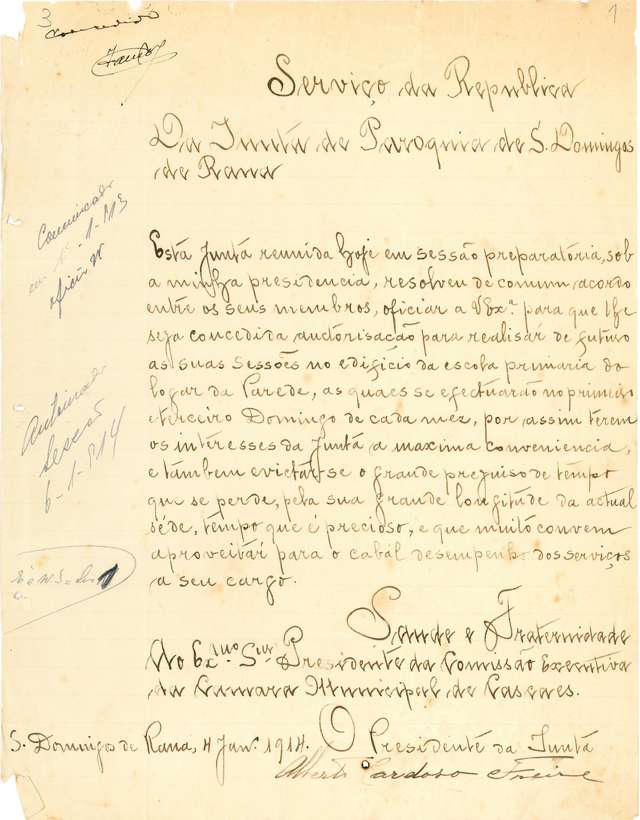 3
1
Concedido
Serviço da Republica
Da Junta de Paroquia de S. Domingos
de Rana
Comunicado
oficio nº
Esta Junta reunida hoje em sessão preparatória, sob
a minha presidencia, resolveu de comum acordo
entre os seus membros, oficiar a VExª. para que lhe
seja concedida auctorisação para realisar de futuro
as suas Sessões no edificio da escola primaria do
logar da Parede, as quaes se efectuarão no primeiro
e terceiro Domingo de cada mez, por assim terem
os interesses da Junta a maxima conveniencia,
e tambem evictar-se o grande prejuiso de tempo
que se perde, pela sua grande longitude da actual
séde, tempo que é precioso, e que muito convem
aproveitar para o cabál desempenho dos serviços
a seu cargo.
6-1-914
Saude e Fraternidade
Ao Exmo. Snr. Presidente da Comissão Executiva
da Camara Municipal de Cascaes.
S. Domingos de Rana, 4 Janº. 1914. O Presidente da Junta
Alberto Cardoso Freire